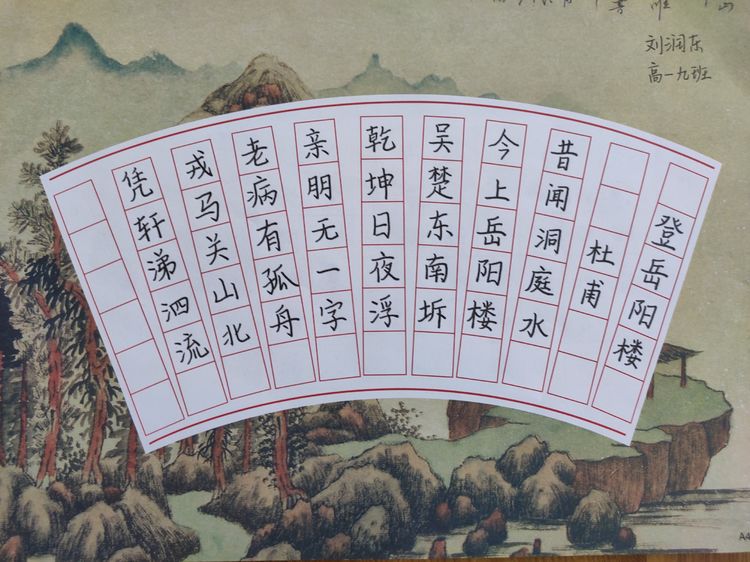 登岳阳楼
杜甫
昔闻洞庭水
今上岳阳楼
吴楚东南坼
乾坤日夜浮
亲朋无一字
老病有孤舟
戎马关山北
凭轩涕泗流
刘润东
高一九班
A4